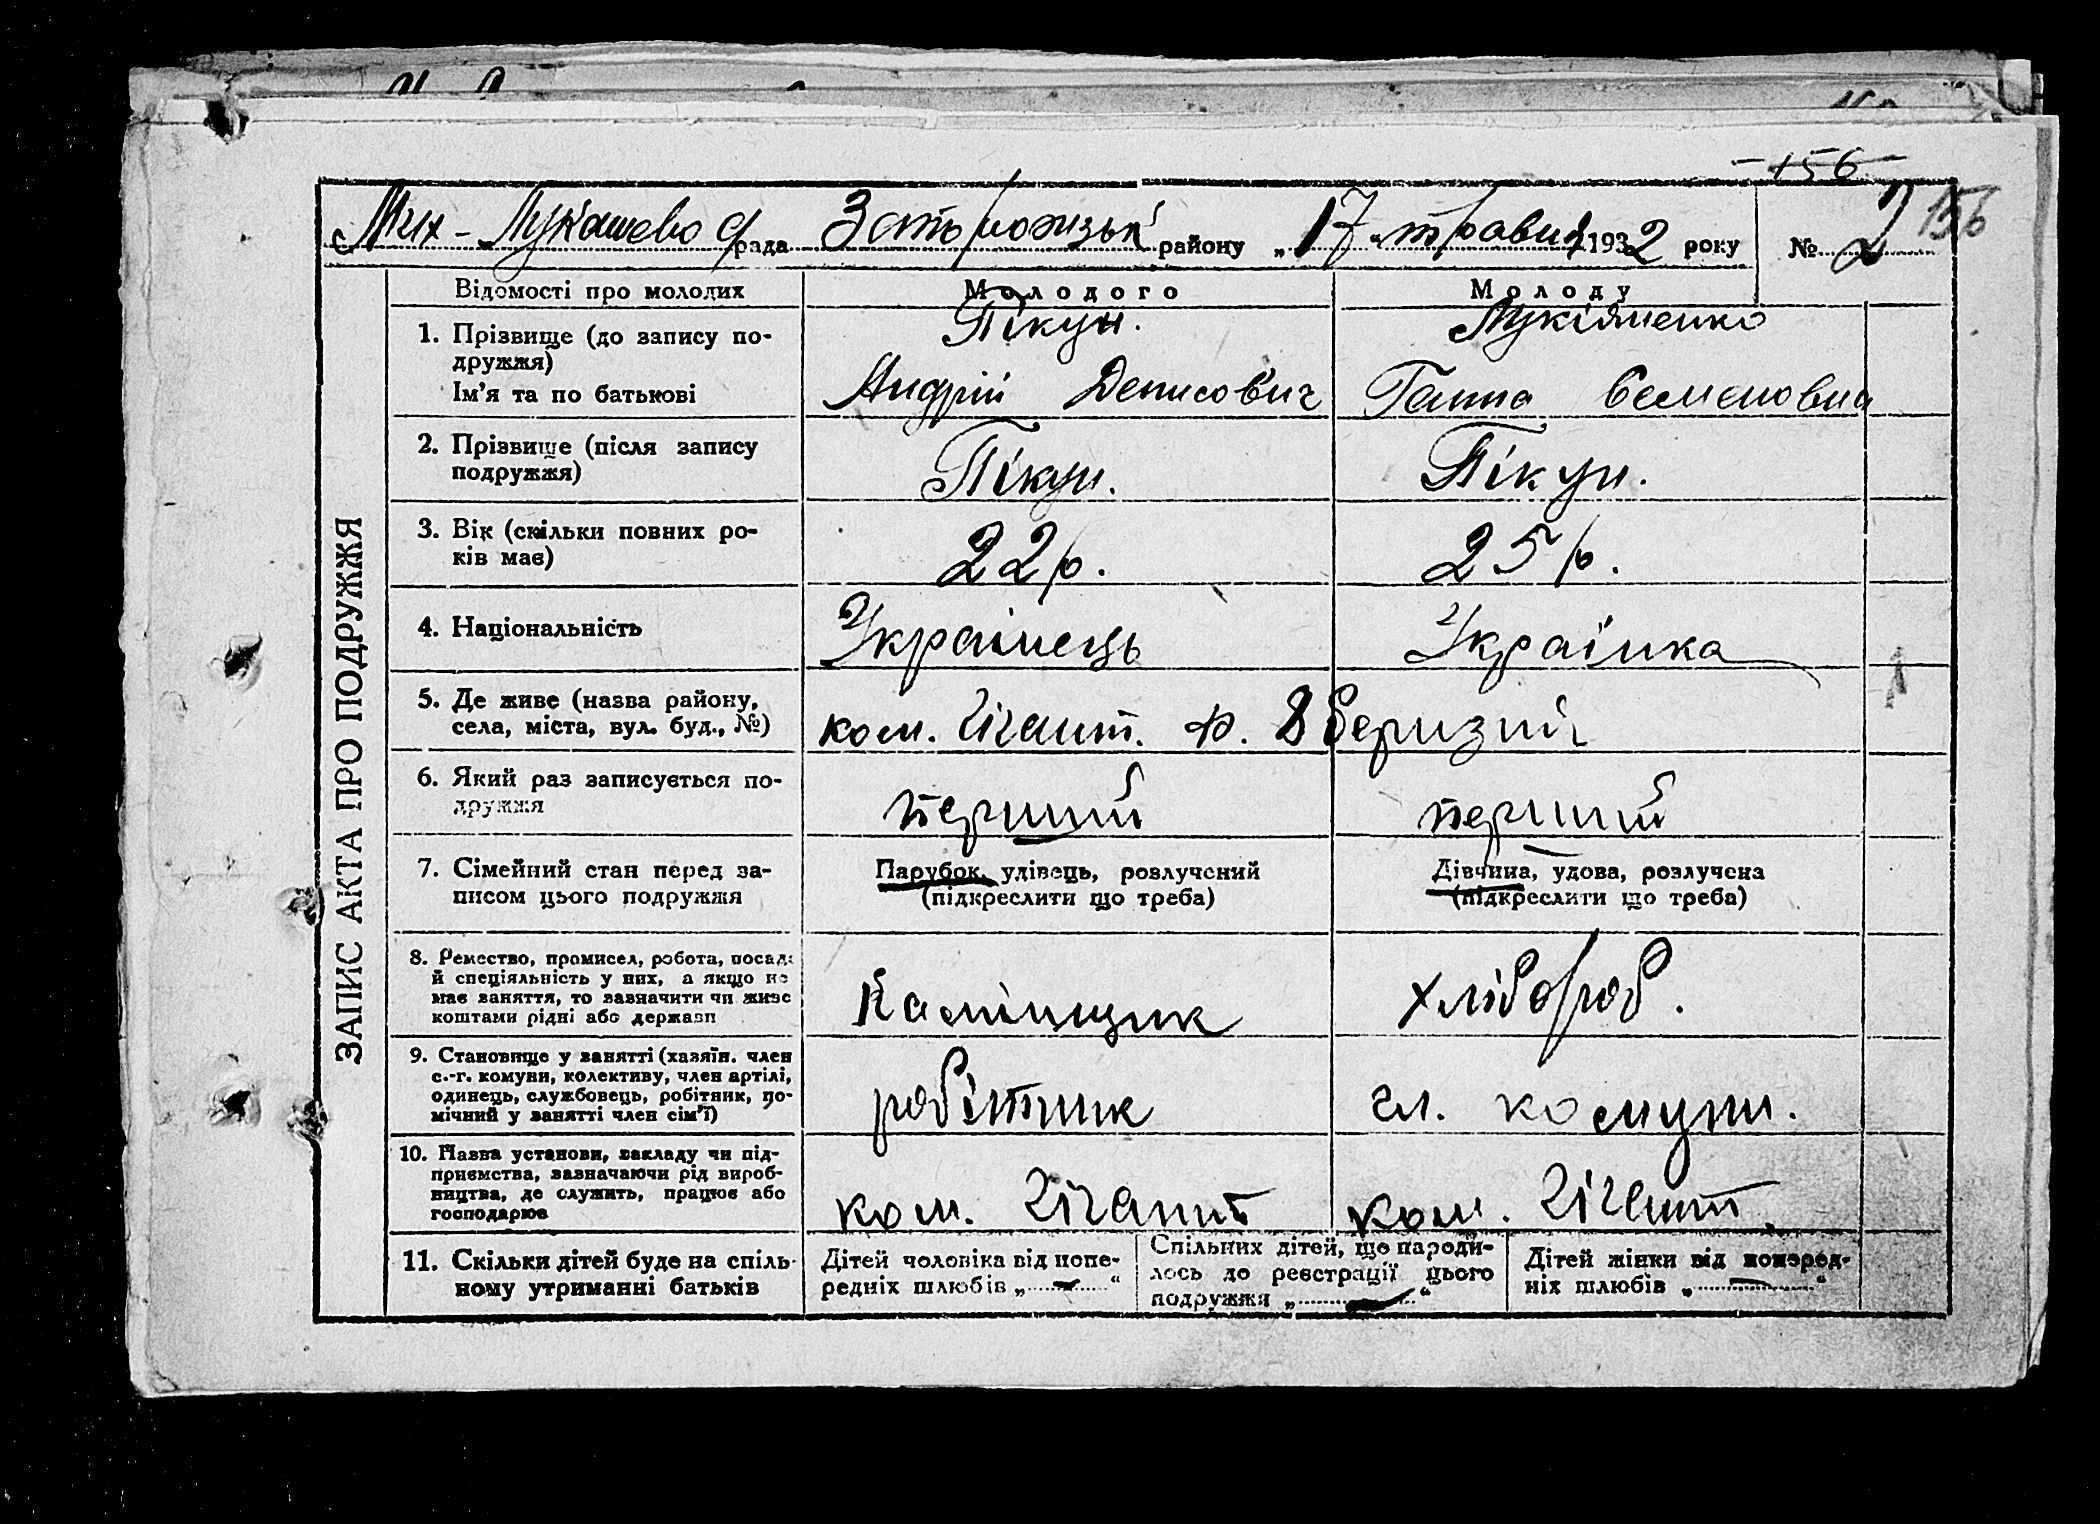 156
Мих-Лукашево рада Запоріжзьк району „17" травня 1932 року № 2 156
ЗАПИС АКТА ПРО ПОДРУЖЖЯ
Відомості про молодих Молодого Молоду
1. Прізвище (до запису по- Пікун. Лукіяненко
дружжя)
Ім'я та по батькові Андрій Денисович Ганна Семеновна
2. Прізвище (після запису Пікун. Пікун.
подружжя)
3. Вік (скільки повних ро- 22 р. 25 р.
ків має)
4. Національність Українець Українка
5. Де живе (назва району,
села, міста, вул. буд., №) ком. Гігант.
6. Який раз записується по- перший перший
дружжя
7. Сімейний стан перед за- Парубок, удівець, розлучений Дівчина, удова, розлучена
писом цього подружжя (підкреслити що треба) (підкреслити що треба)
8. Ремество, промисел, робота, посада
й спеціяльність у них, а якщо не
має заняття, то зазначити чи живе Камінщик хлібороб.
коштами рідні або держави
9. Становище у занятті (хазяїн. член
с.-г. комуни, колективу, член артілі,
одинець, службовець, робітник, по- робітник чл. комуни.
мічний у занятті член сім'ї)
10. Назва установи, закладу чи під-
приємства, зазначаючи рід вироб-
ництва, де служить, працює або ком. Гігант ком. Гігант.
господарює
11. Скільки дітей буде на спіль- Дітей чоловіка від попе- Спільних дітей, що народи- Дітей жінки від поперед-
ному утриманні батьків редніх шлюбів „ — “ лось до реєстрації цього ніх шлюбів „ — “
подружжя „ — “